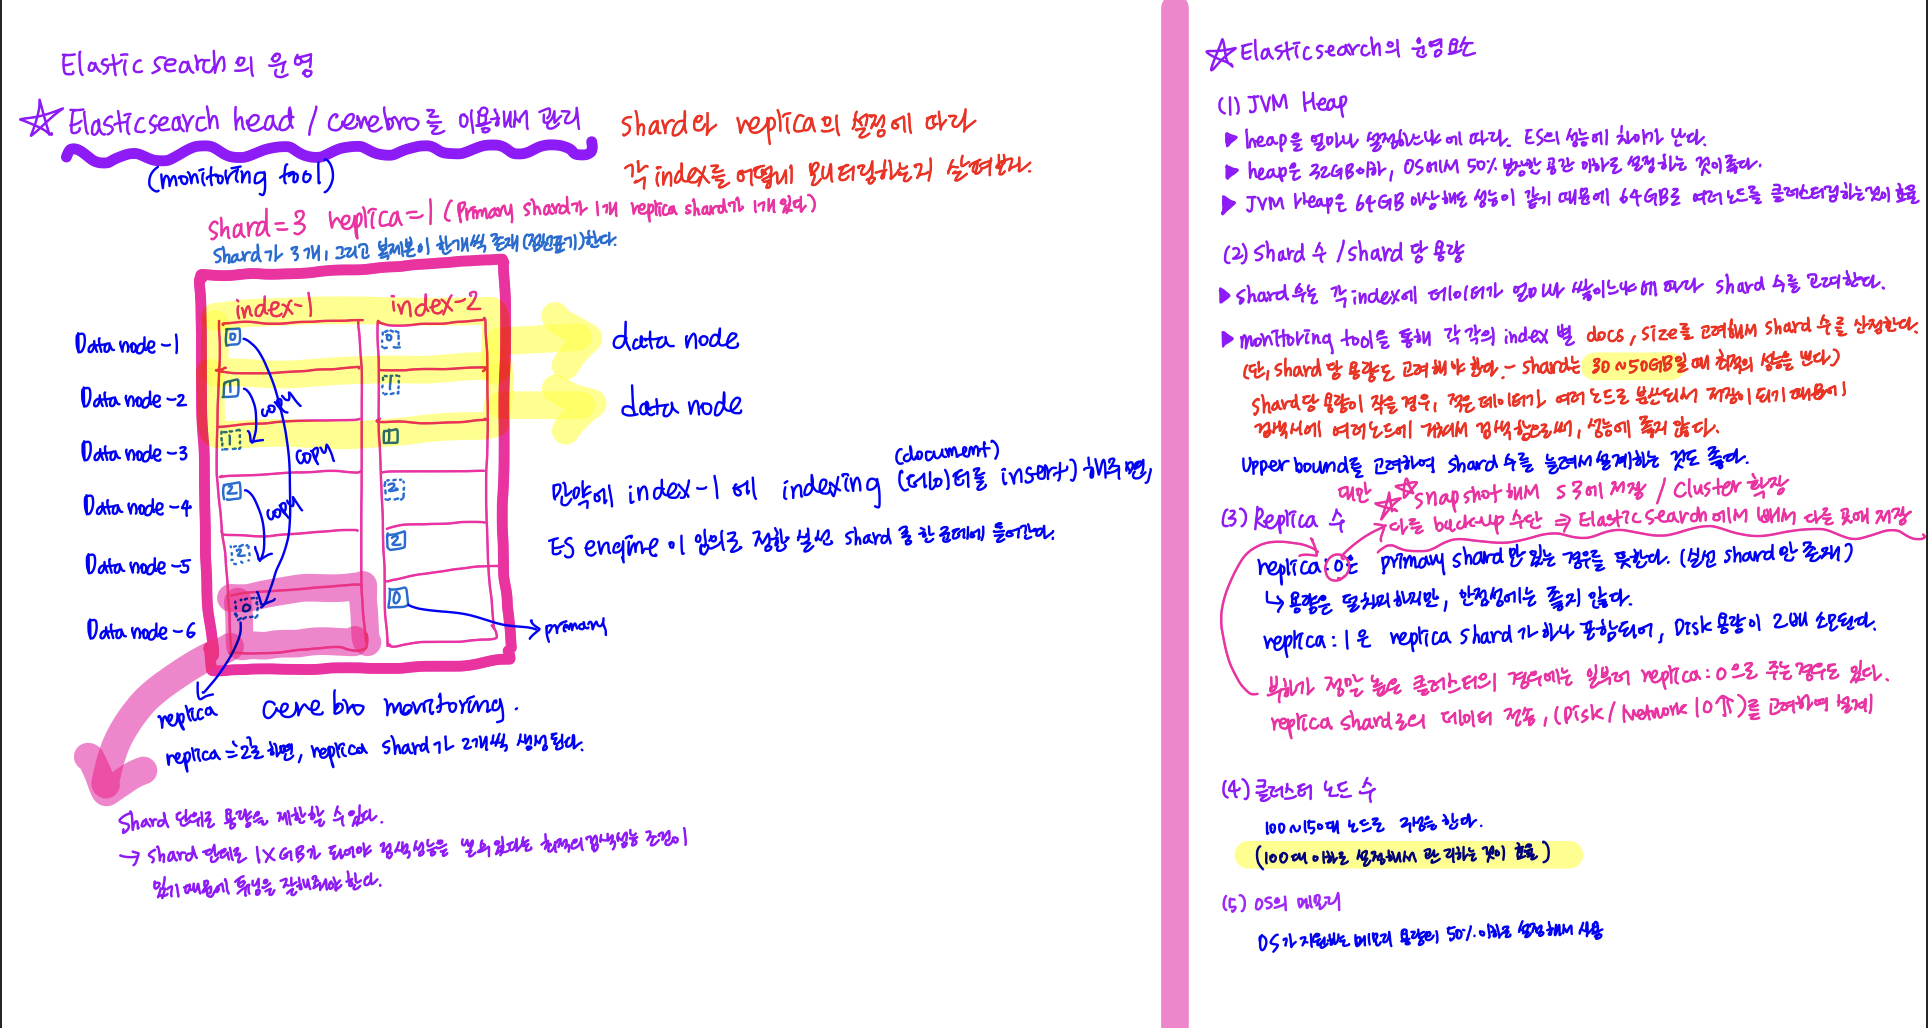 Elasticsearch의 운영
☆ Elasticsearch head / cerebro를 이용해서 관리
(monitoring tool)
shard와 replica의 설정에 따라
각 index를 어떻게 모니터링하는지 살펴본다.
shard=3 replica=1 (Primary shard가 1개 replica shard가 1개 있다)
Shard가 3개, 그리고 복제본이 한개씩 존재(점선표기)한다.
index-1 index-2
Data node-1 0 0 data node
Data node-2 1 1 data node
copy
Data node-3 1 1
copy
Data node-4 2 2
copy
Data node-5 2 2
Data node-6 0 0
primary
replica
cerebro monitoring.
replica=2로 하면, replica shard가 2개씩 생성된다.
(document)
만약에 index-1에 indexing (데이터를 insert) 해주면,
ES engine이 임의로 정한 실선 shard 중 한군데에 들어간다.
Shard 단위로 용량을 제한할 수 있다.
→ shard 단위로 1XGB가 되어야 검색성능을 낼 수 있다는 최적의 검색성능 조건이
있기 때문에 튜닝을 잘해줘야 한다.
☆ Elasticsearch의 운영요소
(1) JVM Heap
▶ heap을 얼마나 설정하느냐에 따라. ES의 성능에 차이가 난다.
▶ heap은 32GB이하, OS에서 50% 공간 이하로 설정하는 것이 좋다.
▶ JVM Heap은 64GB 이상해도 성능이 같기 때문에 64GB로 여러노드를 클러스터링하는것이 효율
(2) Shard 수 / shard 당 용량
▶ shard수는 각 index에 데이터가 얼마나 쌓이느냐에 따라 shard 수를 고려한다.
▶ monitoring tool을 통해 각각의 index 별 docs, size를 고려해서 shard 수를 산정한다.
(단, shard 당 용량도 고려해야 한다. - shard는 30~50GB일 때 최적의 성능을 낸다)
shard당 용량이 작을 경우, 적은 데이터가 여러 노드로 분산되서 저장이 되기 때문에
검색시에 여러노드에 거쳐서 검색함으로써, 성능에 좋지 않다.
Upper bound를 고려하여 shard 수를 늘려서 설계하는 것도 좋다.
대안 ☆☆ snapshot해서 S3에 저장 / Cluster 확장
(3) Replica 수 → 다른 back-up 수단 ⇒ Elasticsearch에서 빼서 다른 곳에 저장
replica:0은 primary shard만 있는 경우를 뜻한다. (실선 shard만 존재)
↳ 용량은 덜차지하지만, 안정성에는 좋지 않다.
replica:1은 replica shard가 하나 포함되어, Disk 용량이 2배 소모된다.
부하가 정말 높은 클러스터의 경우에는 일부러 replica:0으로 주는 경우도 있다.
replica shard로의 데이터 전송, (Disk / Network IO↑)를 고려하여 설계
(4) 클러스터 노드 수
100~150대 노드로 구성을 한다.
(100대 이하로 설정해서 관리하는 것이 효율)
(5) OS의 메모리
OS가 지원하는 메모리 용량의 50% 이하로 설정해서 사용